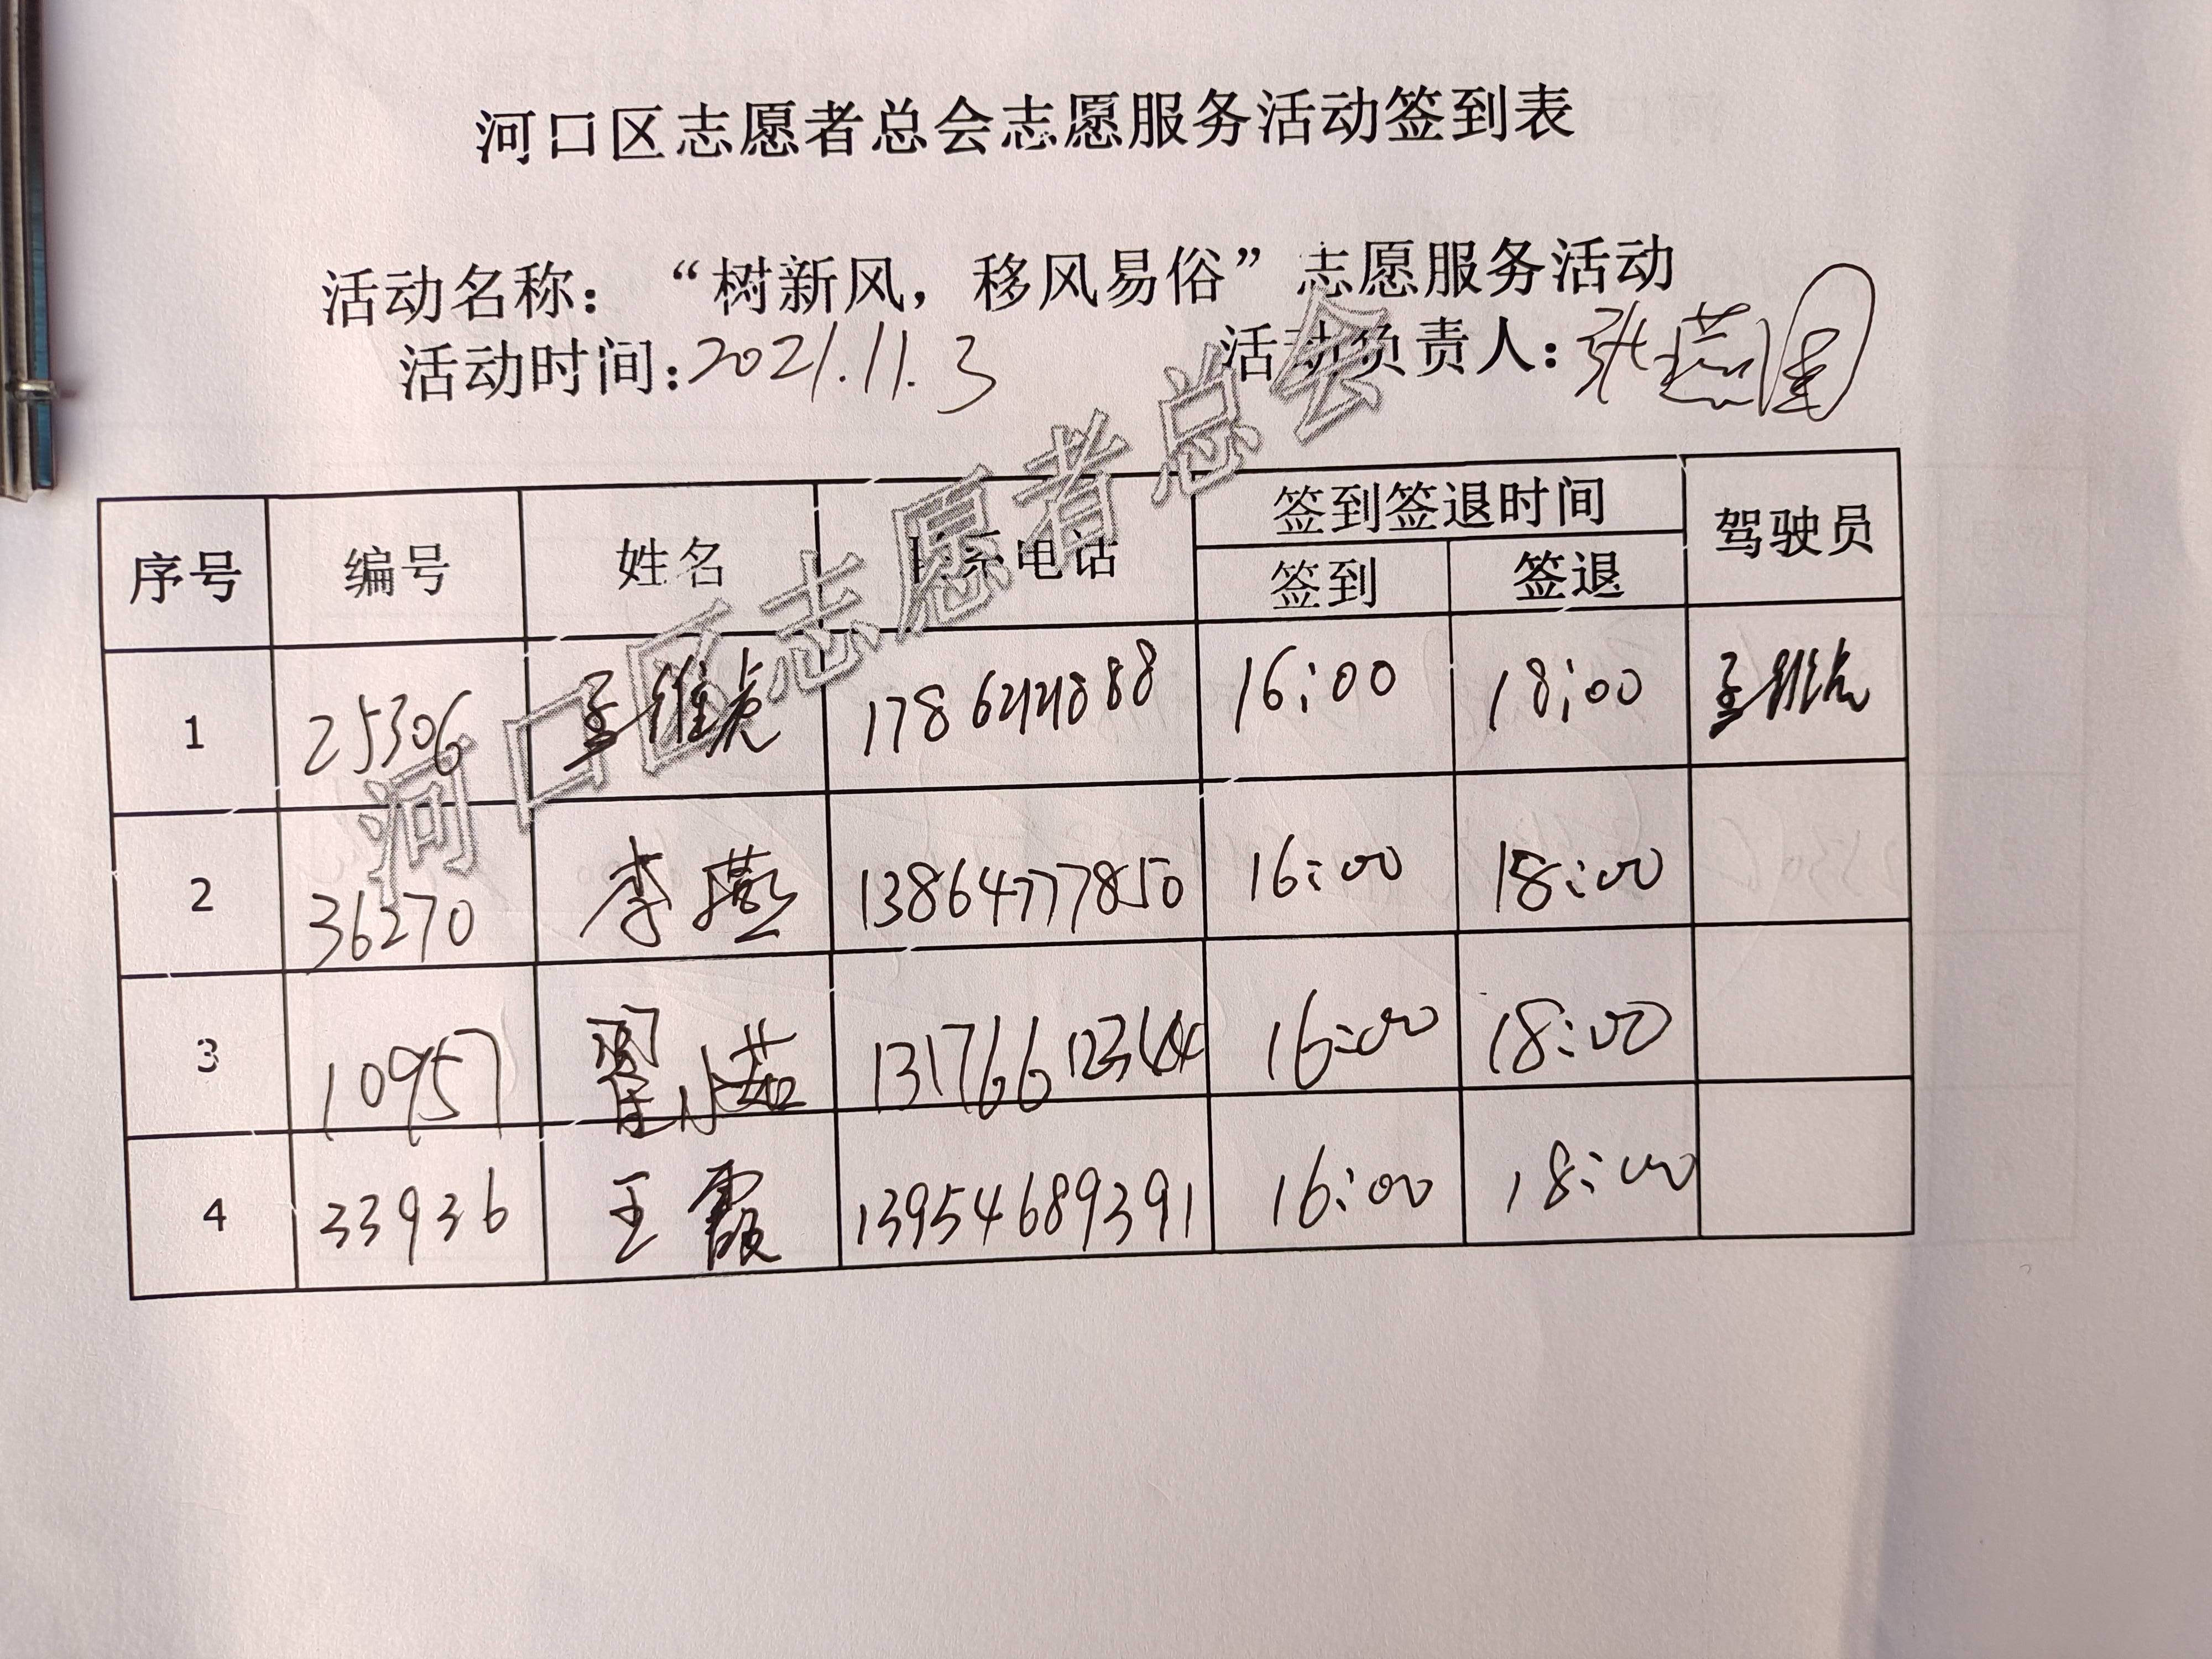 河口区志愿者总会志愿服务活动签到表
活动名称：“树新风，移风易俗”志愿服务活动
活动时间：2021.11.3 活动负责人：张燕
序号 编号 姓名 联系电话 签到签退时间 驾驶员
签到 签退
1 25306 16:00 18:00
2 36270 李燕 13864777850 16:00 18:00
3 10957 翟小茹 16:00 18:00
4 33936 王霞 13954689391 16:00 18:00
河口区志愿者总会